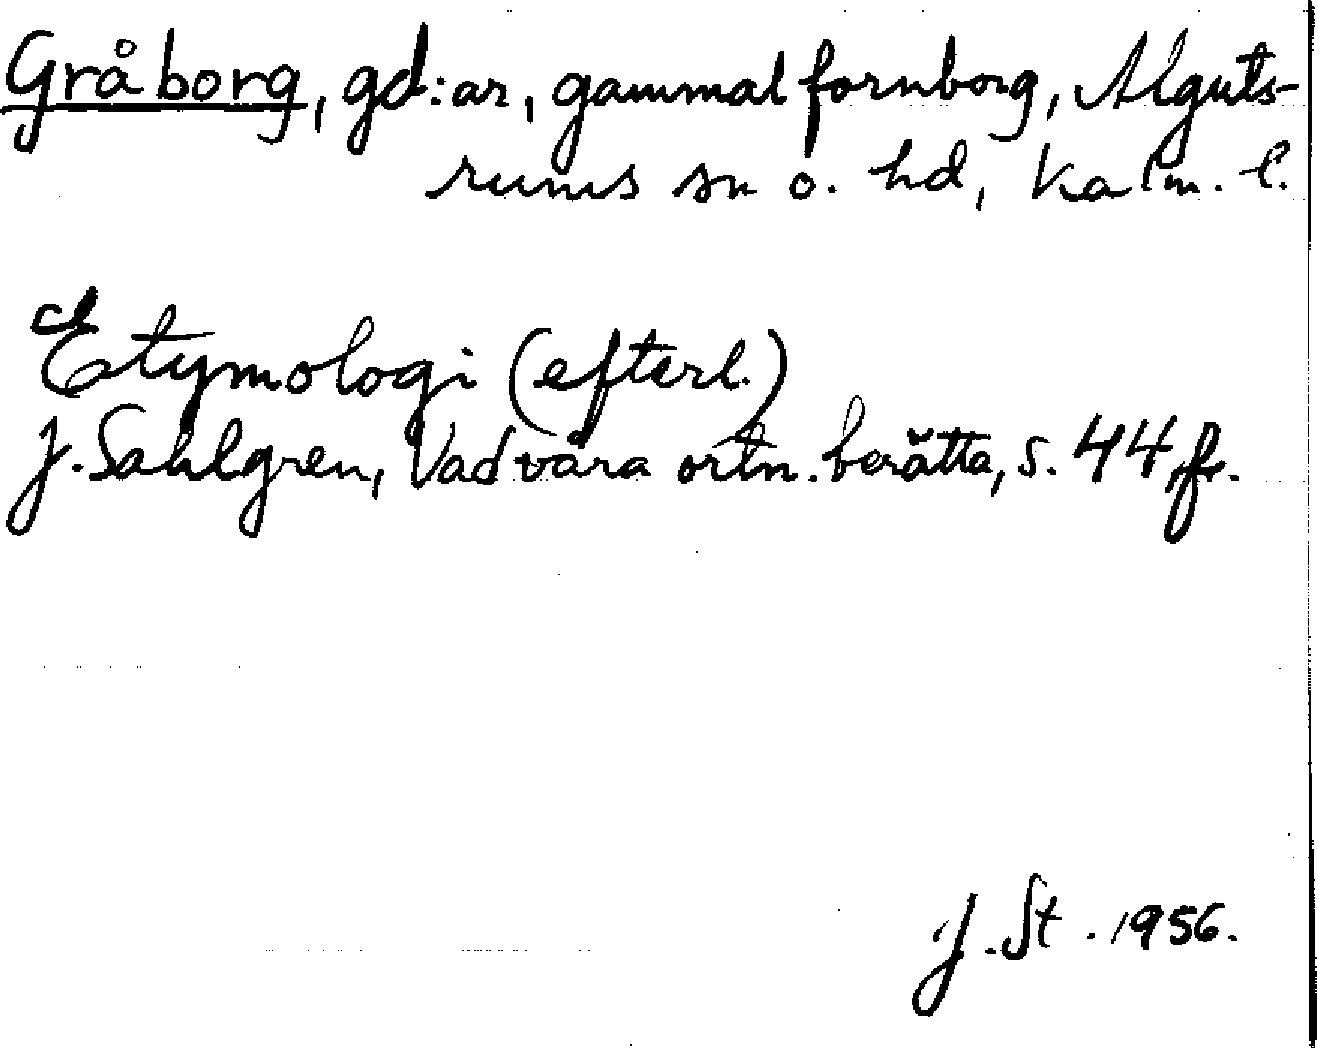 Gråborg, gd:ar, gammal fornborg, Alguts-
rums sn o. hd, Kalm. l.
Etymologi (efterl.)
J. Sahlgren, Vad våra ortn. berätta, s. 44 fr.
J. St. 1956.